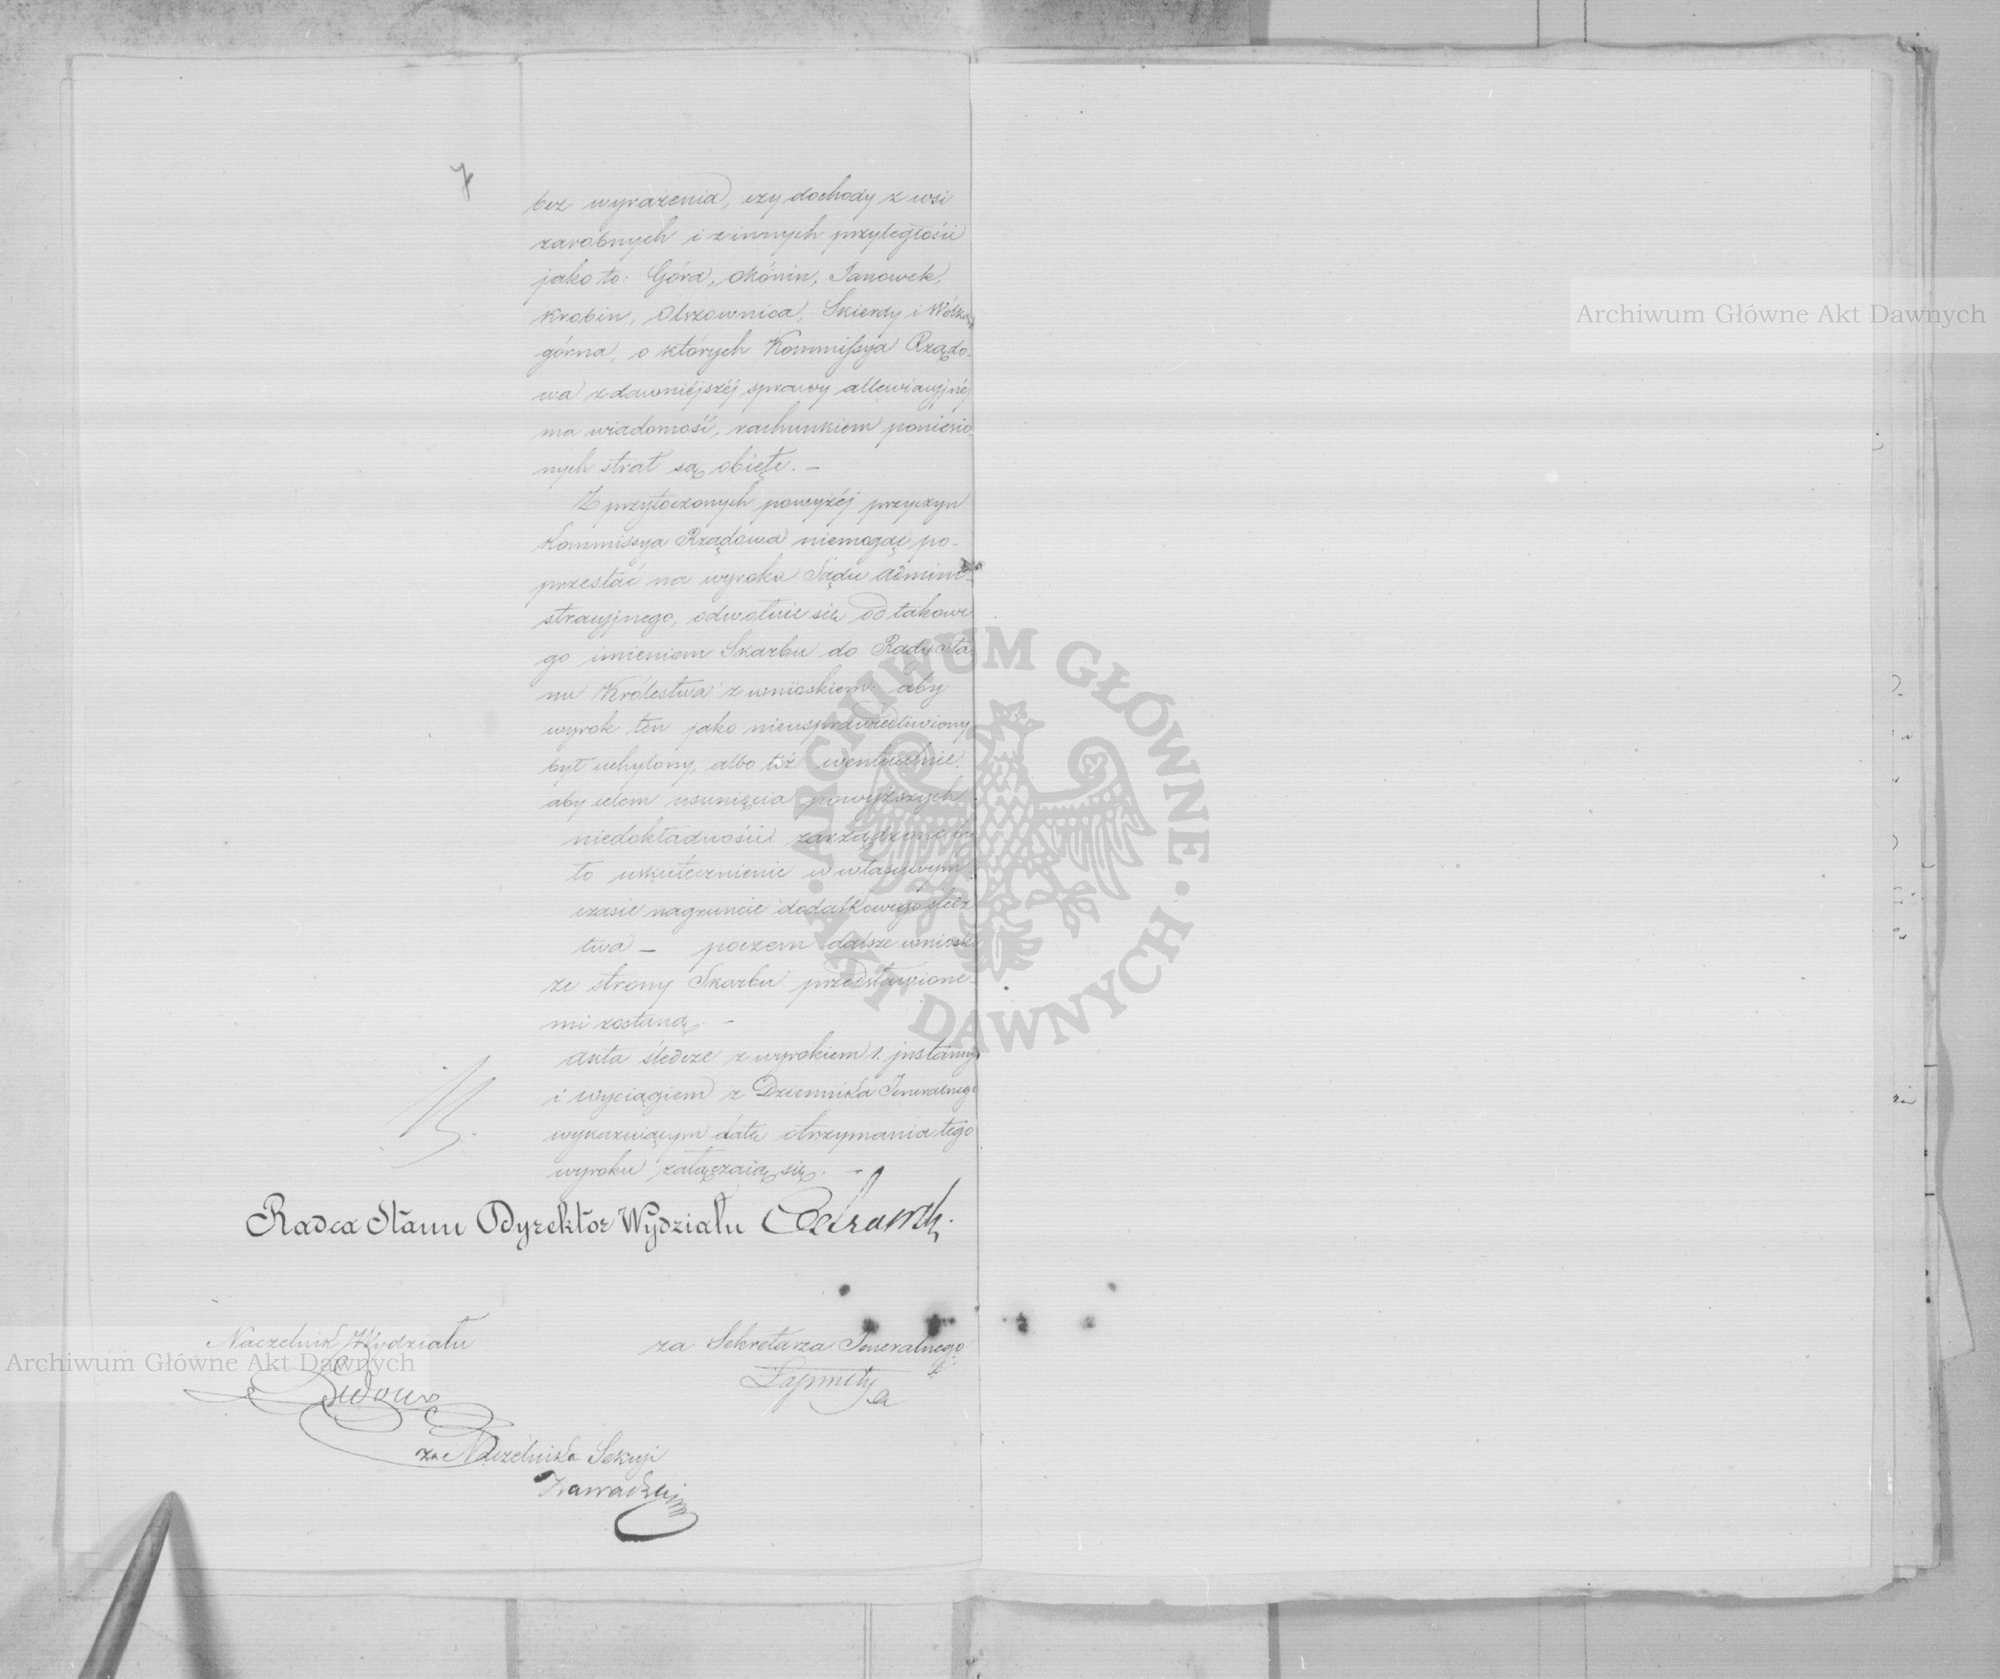 bez wyrażenia, czy dochody z wsi
zarobnych i z innych przyległości
jako to: Góra, Okónin, Janowek,
Krobin, Olszownica, Skierdy i Wólka
górna, o których Kommissya Rządo-
wa z dawniéjszéj sprawy allewiacyjnéj
ma wiadomość, rachunkiem poniesio
nych strat są obięte. —
Z przytoczonych powyżéj przyczyn
Kommissya Rządowa niemogąc po-
przestać na wyroku Sądu Admini-
stracyjnego, odwołuie się od takowe
go imieniem Skarbu do Rady Sta
nu Królestwa z wnioskiem: aby
wyrok ten jako nieusprawiedliwiony
był uchylony, albo też ewentualnie,
aby celem usunięcia powyższych
niedokładności zarządzone by
to uskutecznienie w właściwym
czasie na gruncie dodatkowego śledz
twa — poczem dalsze wniosk
ze strony Skarbu przedstawione-
mi zostaną. —
Akta śledcze z wyrokiem 1. jnstancyi
i wyciągiem z Dziennika Jeneralnego
wykazuiącym datę otrzymania tego
wyroku załączaią się. —
Radca Stanu Dyrektor Wydziału
Naczelnik Wydziału
za Sekretarza Jeneralnego
za Naczelnika Sekcyi
Zawadzki
Archiwum Główne Akt Dawnych
Archiwum Główne Akt Dawnych
ARCHIWUM GŁÓWNE · AKT DAWNYCH ·